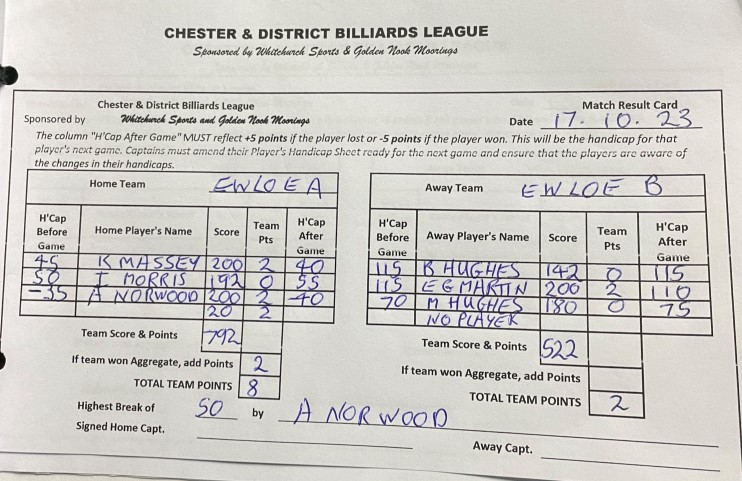 CHESTER & DISTRICT BILLIARDS LEAGUE
Sponsored by Whitchurch Sports & Golden Nook Moorings
Chester & District Billiards League Match Result Card
Sponsored by Whitchurch Sports and Golden Nook Moorings Date 17.10.23
The column "H'Cap After Game" MUST reflect +5 points if the player lost or -5 points if the player won. This will be the handicap for that
player's next game. Captains must amend their Player's Handicap Sheet ready for the next game and ensure that the players are aware of
the changes in their handicaps.
Home Team EWLOE A
H'Cap Before Game Home Player's Name Score Team Pts H'Cap After Game
45 K MASSEY 200 2 40
50 I MORRIS 192 0 55
-35 A NORWOOD 200 2 -40
20 2
Team Score & Points 792
If team won Aggregate, add Points 2
TOTAL TEAM POINTS 8
Away Team EWLOE B
H'Cap Before Game Away Player's Name Score Team Pts H'Cap After Game
115 B HUGHES 142 0 115
115 E G MARTIN 200 2 110
70 M HUGHES 180 0 75
NO PLAYER
Team Score & Points 522
If team won Aggregate, add Points
TOTAL TEAM POINTS 2
Highest Break of 50 by A NORWOOD
Signed Home Capt. Away Capt.